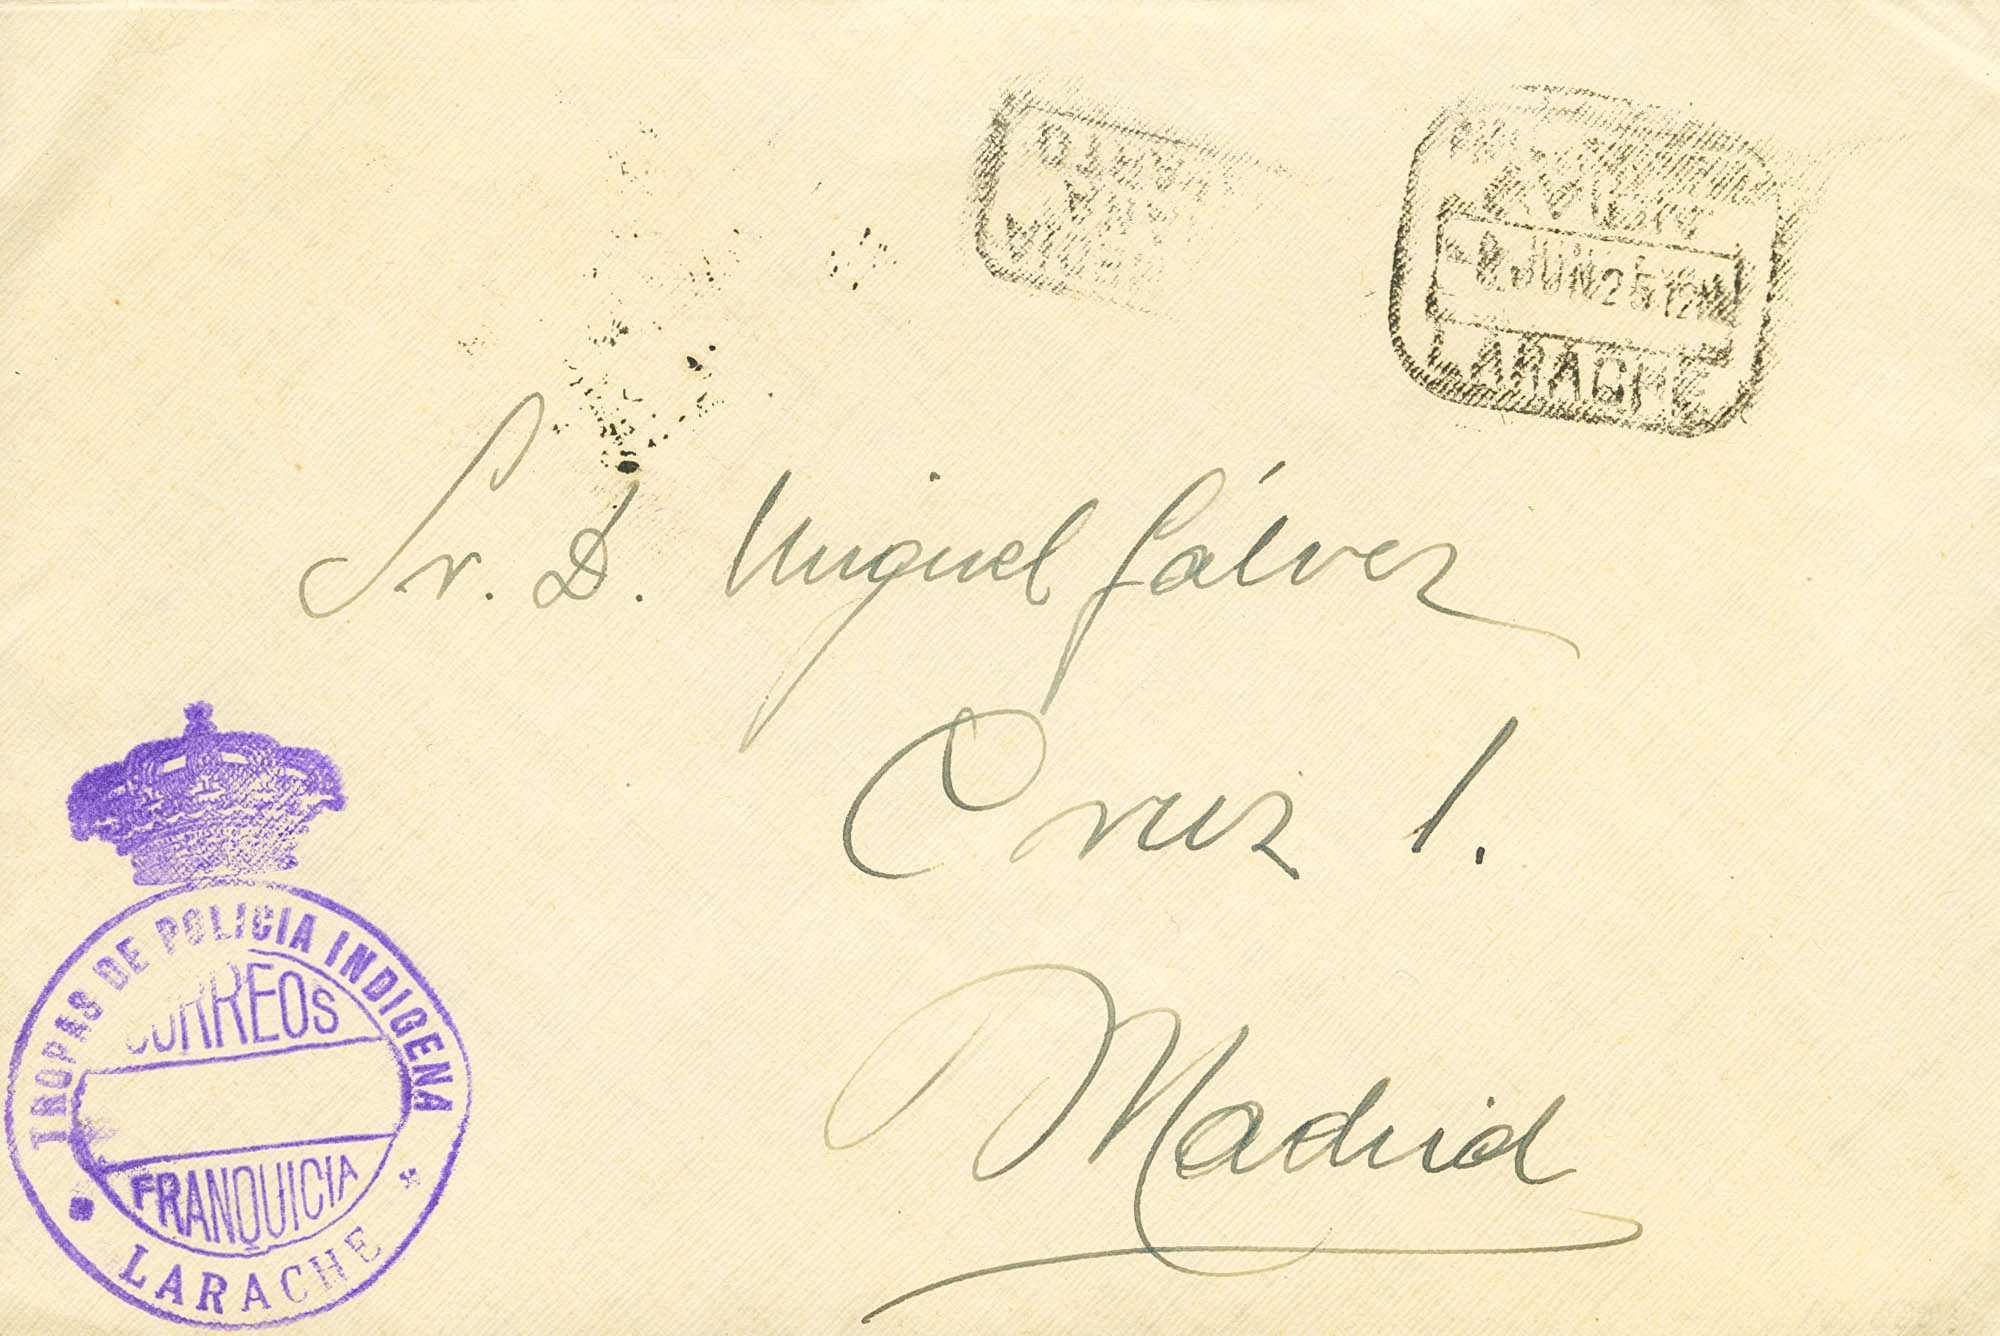 8 JUN 25 12
LARACHE
Sr. D. Miguel Gálvez
Cruz 1.
Madrid
TROPAS DE POLICIA INDIGENA
CORREOS
FRANQUICIA
LARACHE